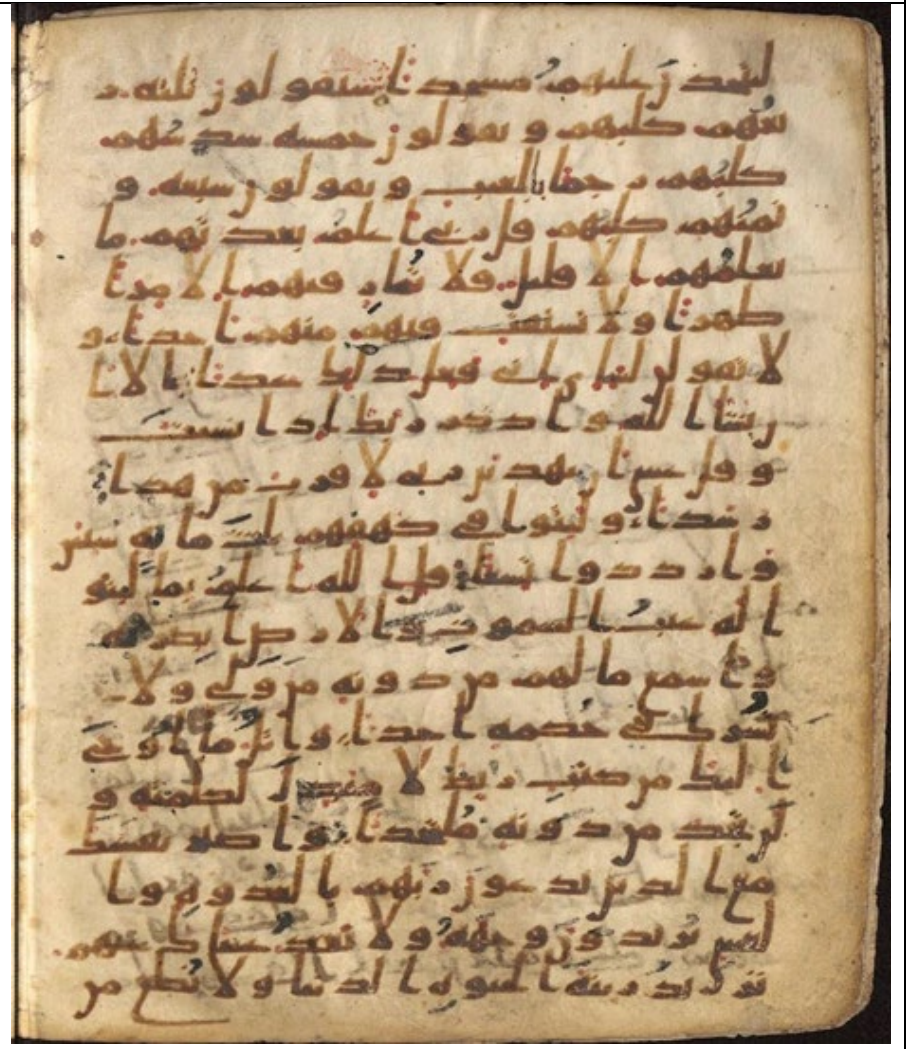 لنتخذن عليهم مسجدا سيقولون ثلثه ر
بعهم كلبهم و يقولون خمسه سدسهم
كلبهم رجما بالغيب و يقولون سبعه و
ثمنهم كلبهم قل ربي اعلم بعدتهم ما
يعلمهم الا قليل فلا تمار فيهم الا مرا
ظهرا و لا تستفت فيهم منهم احدا و
لا تقولن لشاي اني فعل ذلك غدا الا ا
ن يشا الله و اذكر ربك اذا نسيت
و قل عسى ان يهدين ربي لاقرب من هذا
رشدا و لبثوا في كهفهم ثلث مايه سنين
و ازددوا تسعا قل الله اعلم بما لبثو
ا له غيب السموت و الارض ابصر به
و اسمع ما لهم من دونه من ولي و لا
يشرك في حكمه احدا و اتل ما اوحي
اليك من كتب ربك لا مبدل لكلمته و
لن تجد من دونه ملتحدا و اصبر نفسك
مع الذين يدعون ربهم بالغدوه و ا
لعشي يريدون وجهه و لا تعد عيناك عنهم
تريد زينه الحيوه الدنيا و لا تطع من